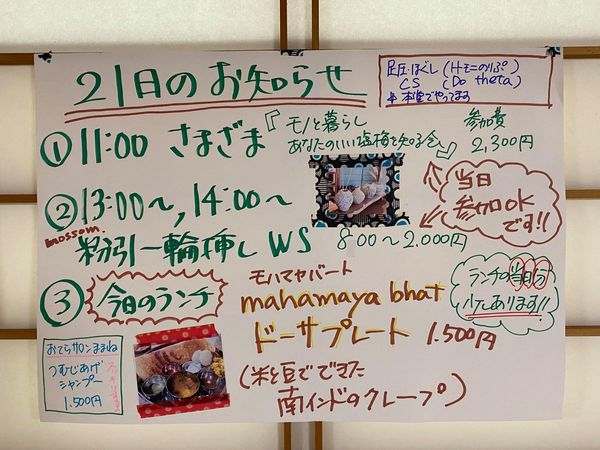 21日のお知らせ
足圧ほぐし (Hモニのりぷ)
CS (Do theta)
※ 本堂でやってます
① 11:00 さまざま
『モノと暮らし
あなたのいい塩梅を知る会』
参加費
2,300円
② 13:00〜, 14:00〜
mossom.
粉引一輪挿し WS
800〜2.000円
当日
参加OK
です!!
③ 今日のランチ
モハマヤバート
mahamaya bhat
ドーサプレート 1.500円
(米と豆でできた
南インドのクレープ)
ランチの当日分
少しあります!!
おてらサロンままね
つむじあげ
シャンプー
1.500円